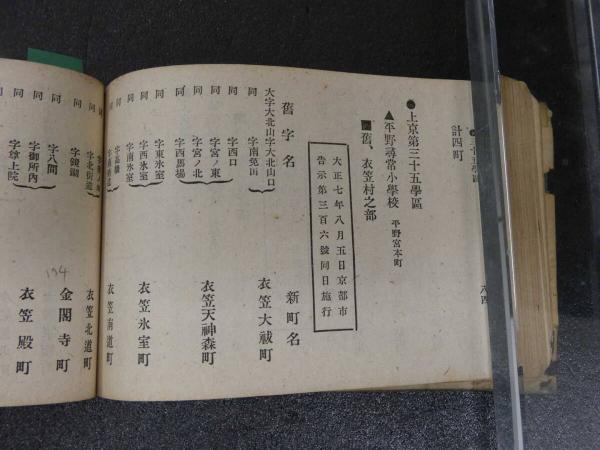 計四町
八四
●上京第三十五學區
▲平野尋常小學校 平野宮本町
舊、衣笠村之部
大正七年八月五日京都市
告示第三百六號同日施行
舊字名 新町名
大字大北山字大北山口
同 字南兎田 衣笠大祓町
同 字西口
同 字宮ノ東
同 字宮ノ北 衣笠天神森町
同 字西馬場
同 字東氷室
同 字西氷室 衣笠氷室町
同 字南氷室
同 字高橋
同 衣笠南道町
同 字北街道 衣笠北道町
同 字鏡湖
同 字八間 金閣寺町
同 字御所内
同 字掌上院 衣笠殿町
194